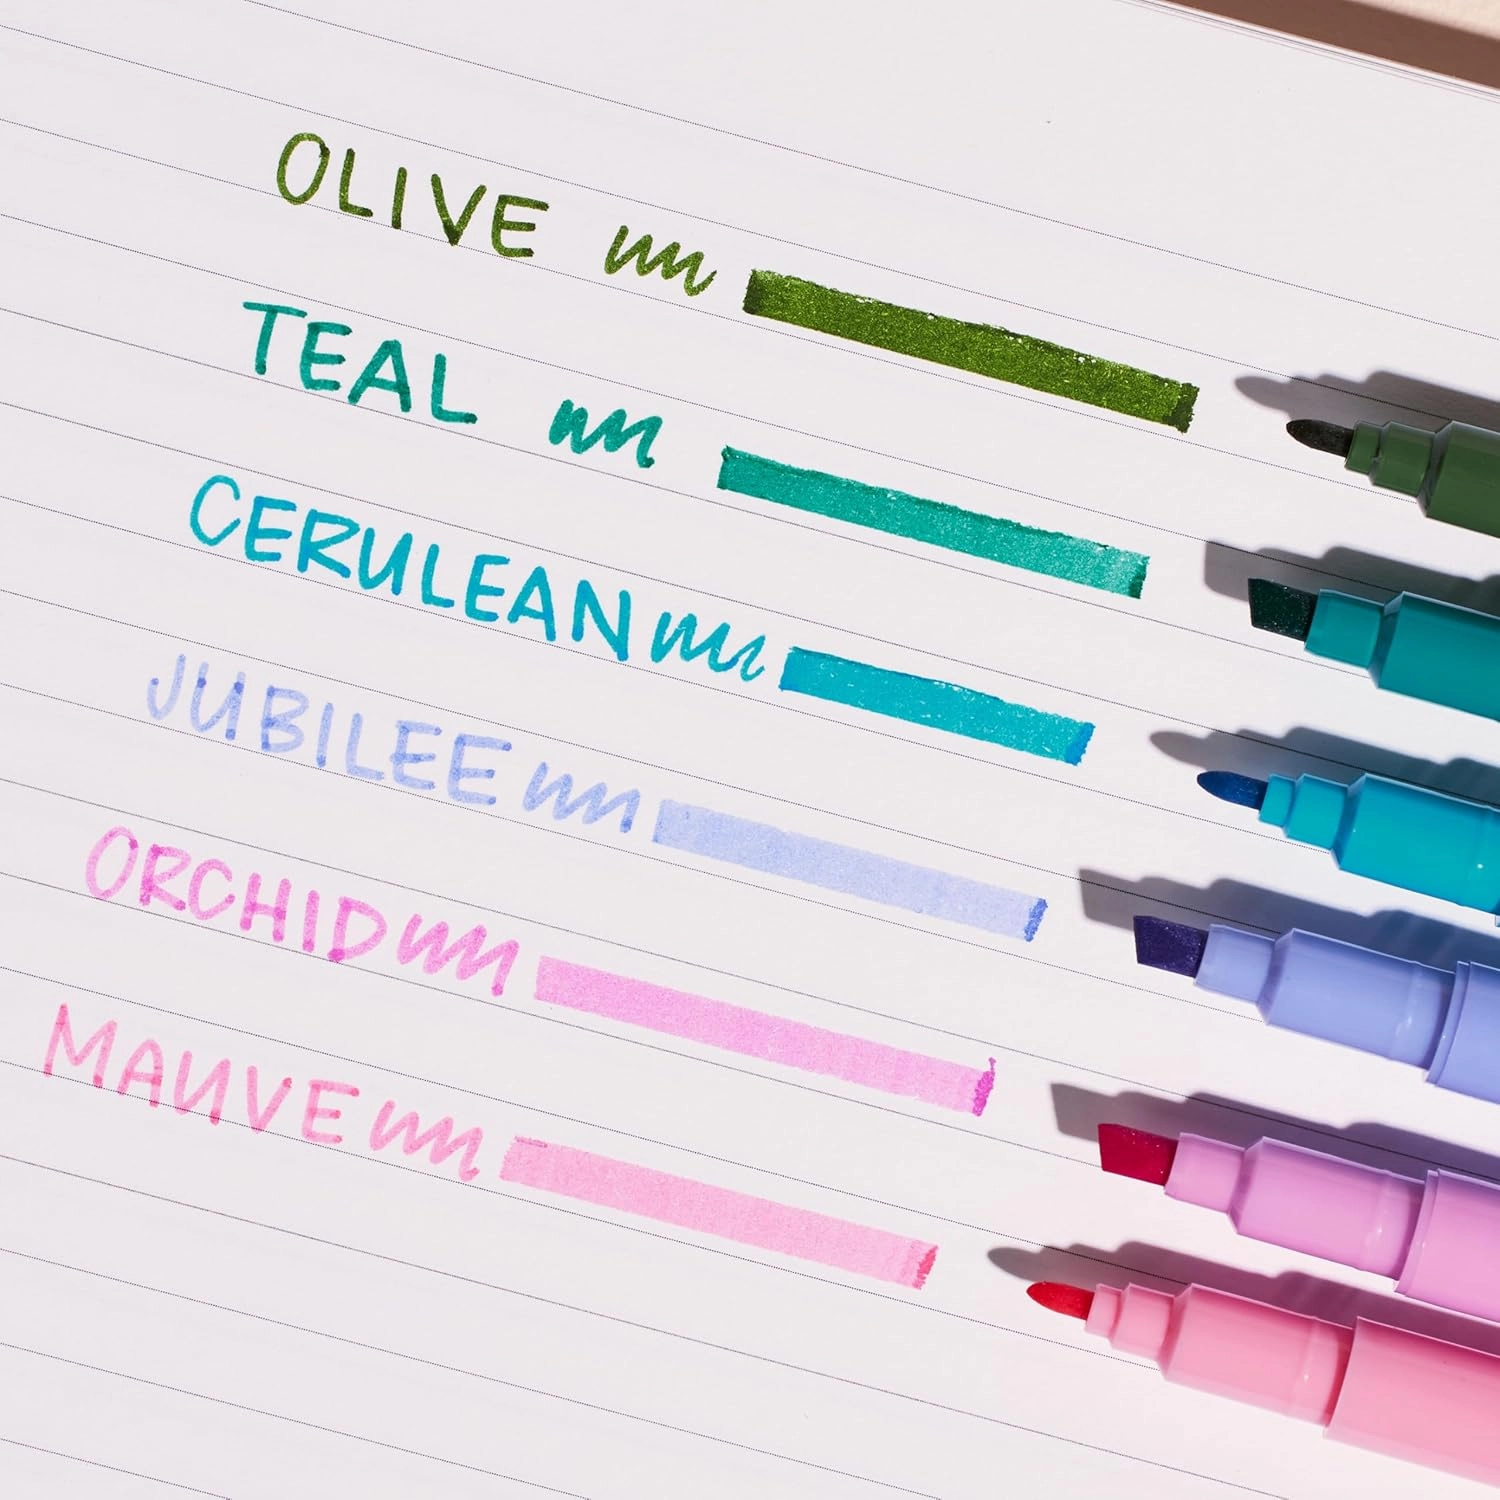 OLIVE
TEAL
CERULEAN
JUBILEE
ORCHID
MAUVE